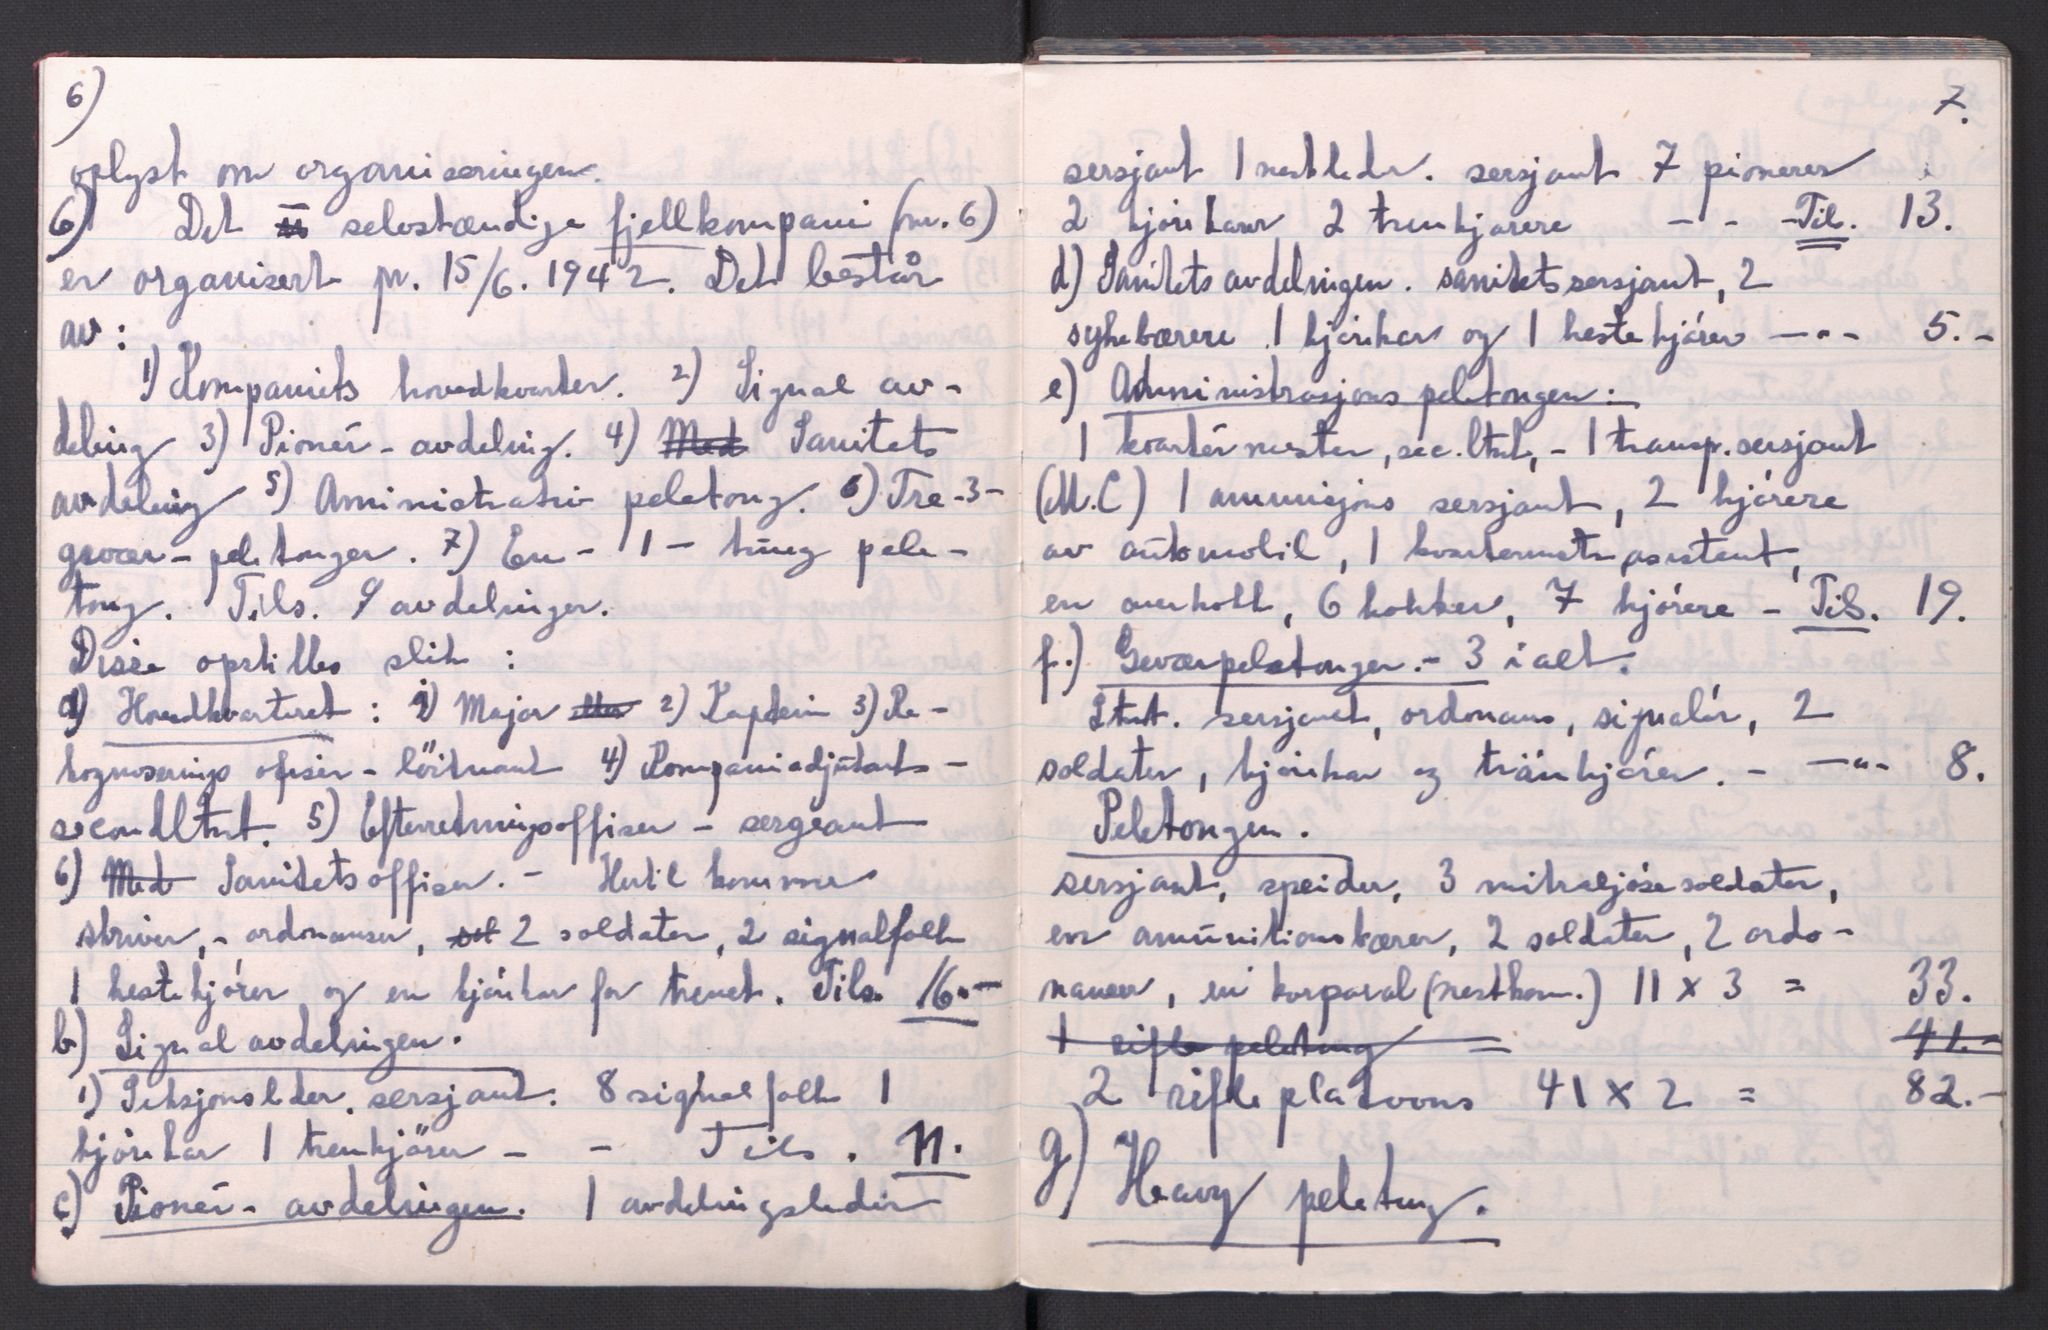 6)
oplyst om organiseringen.
6) Det selvstændige fjellkompani (nr. 6)
er organisert pr. 15/6. 1942. Det består
av:
1) Kompaniets hovedkvarter. 2) Signal av-
deling 3) Pionér - avdeling. 4) Med Sanitets
avdeling 5) Aministrativ peletong. 6) Tre -3-
gevær - peletonger. 7) En - 1 - tung pele-
tong. Tils. 9 avdelinger.
Disse opstilles slik :
a) Hovedkvarteret : 1) Major 2) Kaptein 3) Re-
kognoserings ofiser - löitnant 4) Kompaniadjutant -
secondltnt. 5) Efterretningsoffiser - sergeant
6) Med Sanitetsoffiser. - Hertil kommer
skriver, - ordonanser, sol 2 soldater, 2 signalfolk
1 hestekjórer og en kjórekar for trenet. Tils. 16.-
b) Signalavdelingen.
1) Seksjonsleder. sersjant. 8 signalfolk 1
kjórekar 1 trenkjörer - - Tils. 11.
c) Pionér - avdelingen. 1 avdelingsleder
7.
sersjant 1 nestleder. sersjant 7 pionerer
2 kjórekarer 2 trenkjørere - - - Til. 13.
d) Sanitetsavdelingen. sanitetssersjant, 2
sykebærere 1 kjórekar og 1 hestekjórer -"- 5.-
e) Administrasjons peletongen :
1 kvartérmester, sec.ltnt, - 1 transp.sersjant
(M.C) 1 ammisjons sersjant, 2 kjórere
av automobil, 1 asistent,
en overkokk, 6 kokker, 7 kjórere - Tils. 19.
f.) Geværpeletonger. - 3 i alt.
Ltnt. sersjant, ordonans, signalér, 2
soldater, kjórekar og tränkjórer. - -"- 8.
Peletongen.
sersjant, speider, 3 mitraljósesoldater,
en amunitionsbærer, 2 soldater, 2 ordo-
nanser, en korporal (nestkom.) 11 x 3 = 33.
1 rifle peletong = 41.-
2 rifle platoons 41 x 2 = 82.-
g) Heavy peletong.